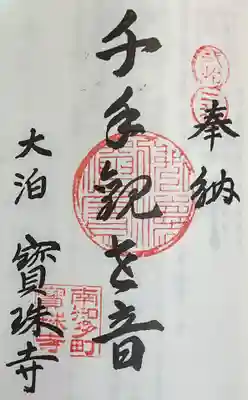 奉納
千手観世音
大泊
寶珠寺
南知多町
寶珠寺